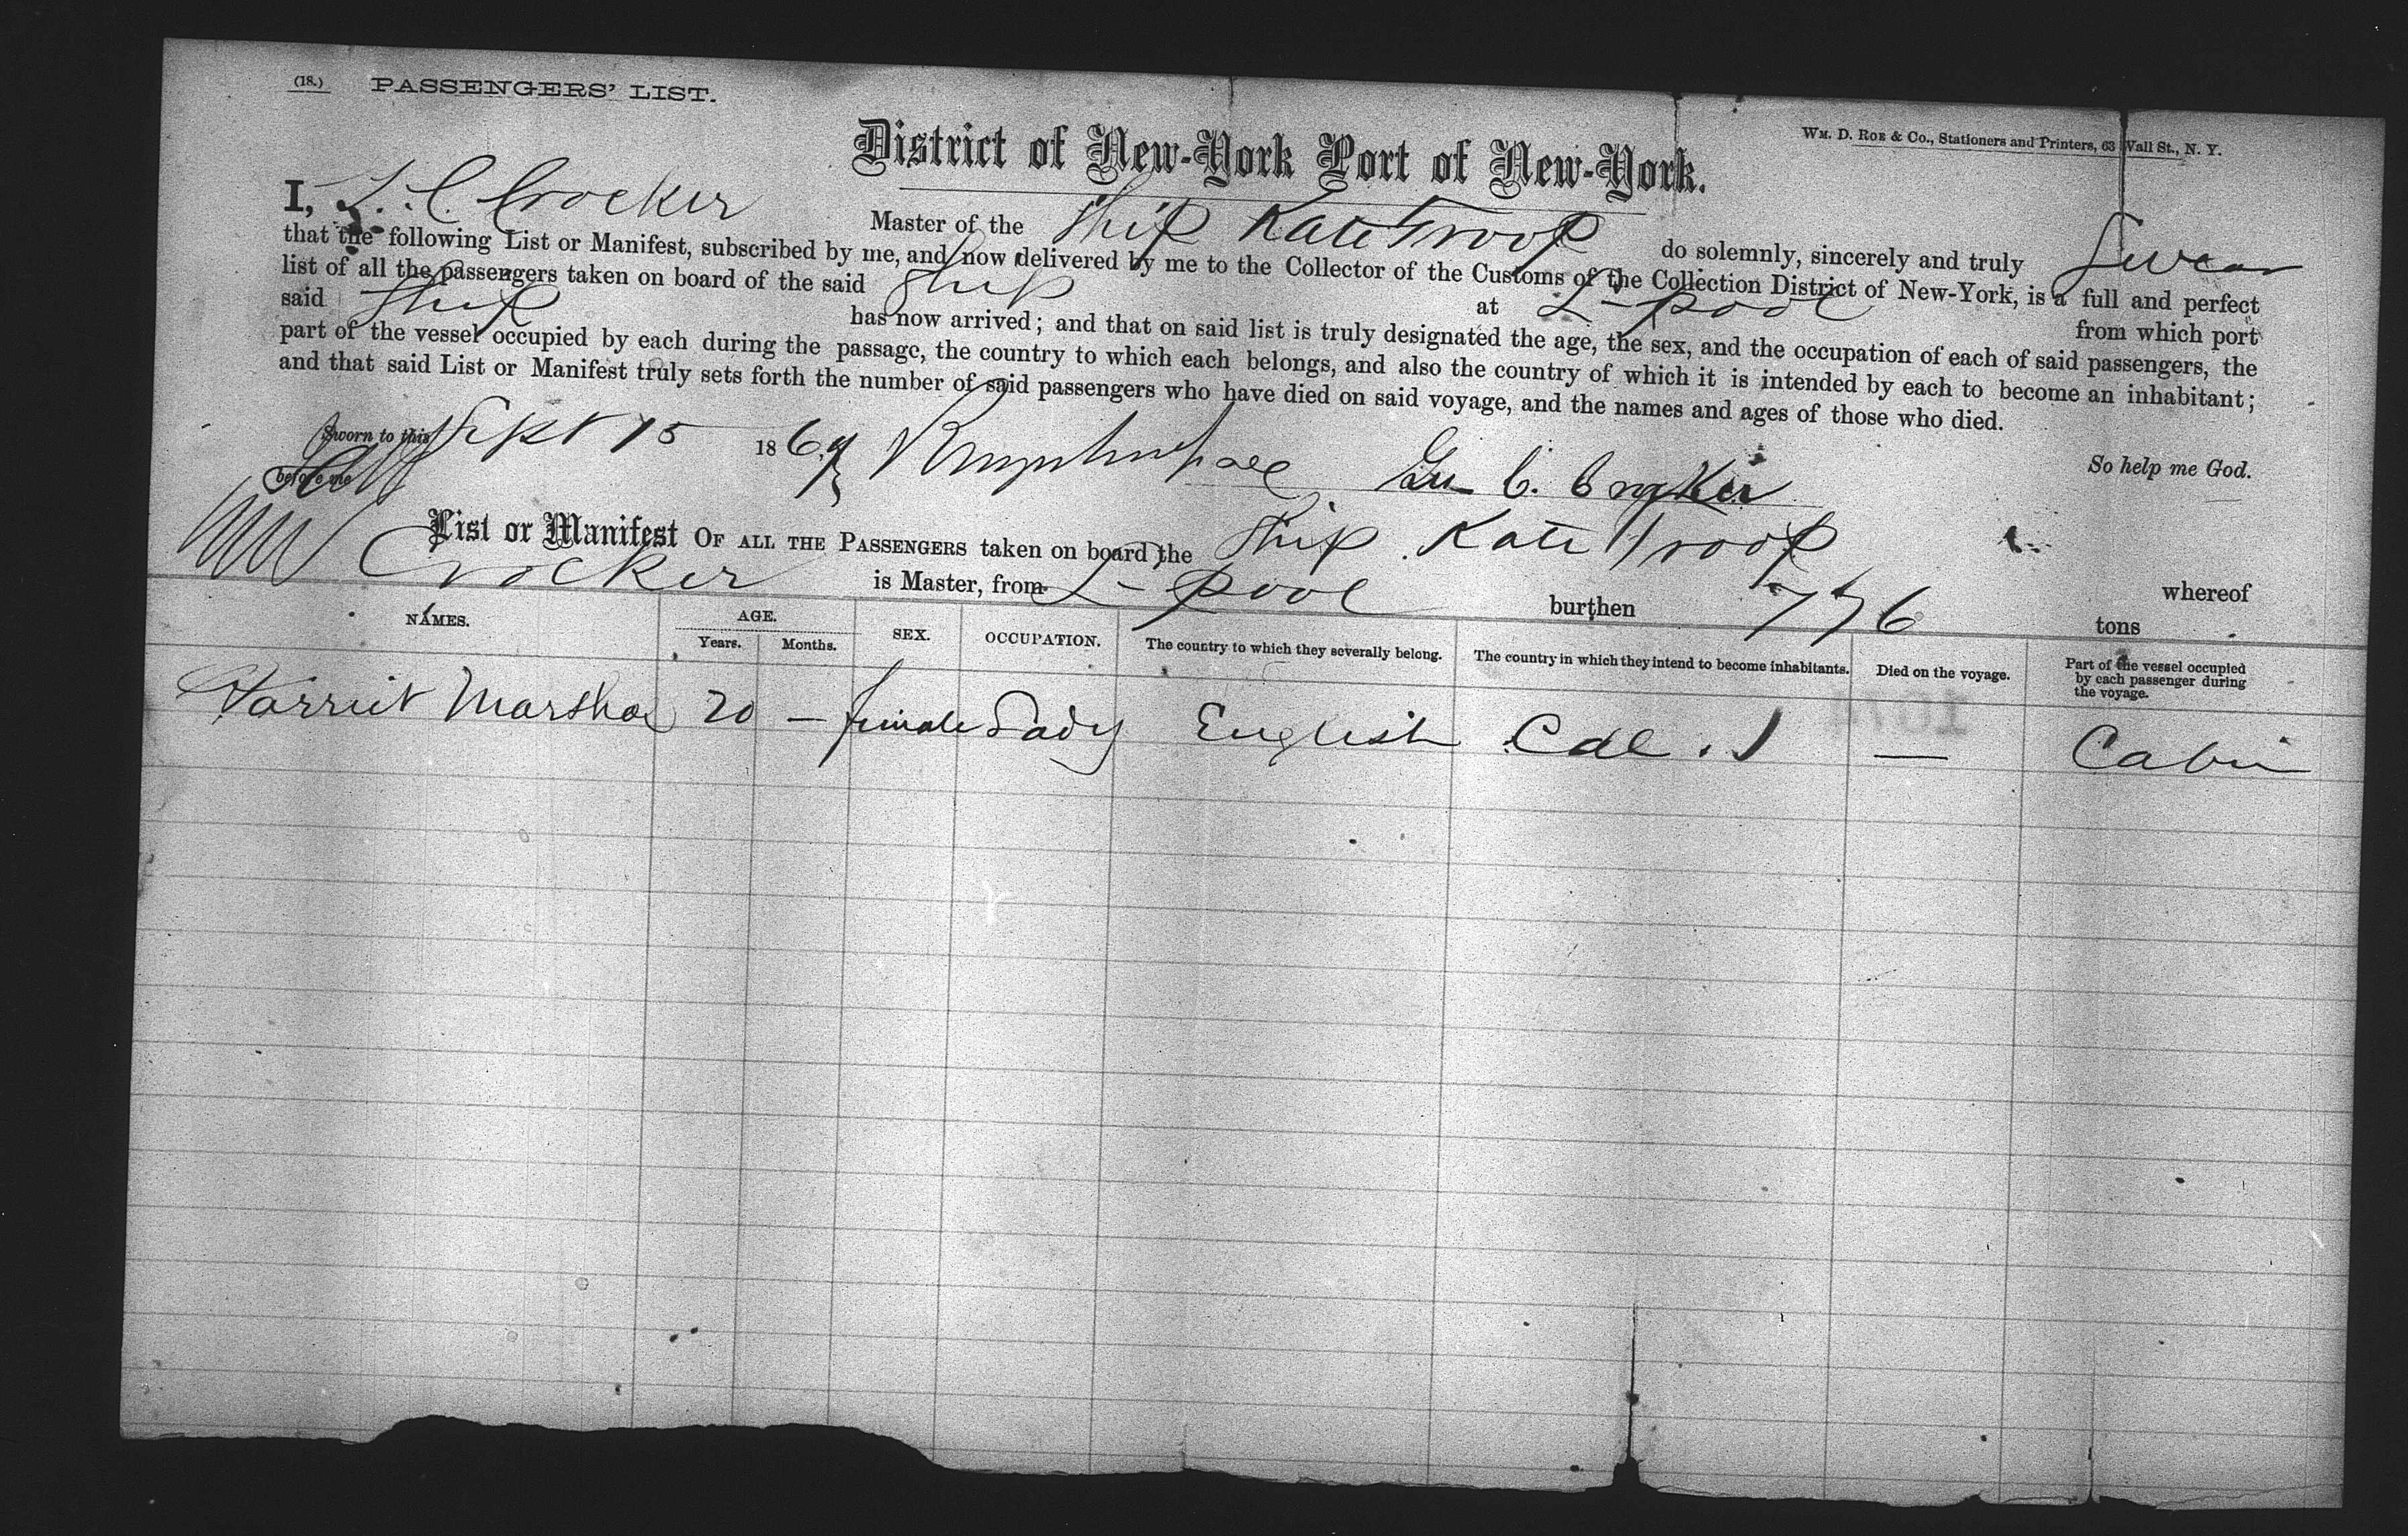 (18.) PASSENGERS' LIST.
WM. D. ROE & Co., Stationers and Printers, 63 Wall St., N. Y.
District of New-York Port of New-York.
I, L. C. Crocker Master of the Ship Kate Troop do solemnly, sincerely and truly Swear
that the following List or Manifest, subscribed by me, and now delivered by me to the Collector of the Customs of the Collection District of New-York, is a full and perfect
list of all the passengers taken on board of the said Ship at L-pool from which port
said Ship has now arrived; and that on said list is truly designated the age, the sex, and the occupation of each of said passengers, the
part of the vessel occupied by each during the passage, the country to which each belongs, and also the country of which it is intended by each to become an inhabitant;
and that said List or Manifest truly sets forth the number of said passengers who have died on said voyage, and the names and ages of those who died.
So help me God.
Sworn to this Sept 15 1869 Geo C. Crocker
before me
List or Manifest OF ALL THE PASSENGERS taken on board the Ship Kate Troop whereof
Crocker is Master, from L-pool burthen 776 tons
NAMES. AGE. SEX. OCCUPATION. The country to which they severally belong. The country in which they intend to become inhabitants. Died on the voyage. Part of the vessel occupied by each passenger during the voyage.
Years. Months.
Harriet Marsha 20 — female Lady English Cal. — Cabin